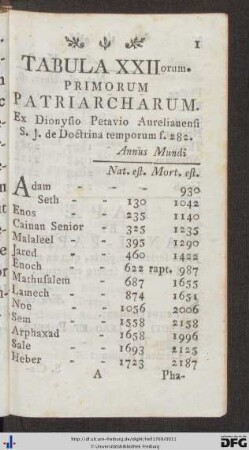 1
TABULA XXIIorum.
PRIMORUM
PATRIARCHARUM.
Ex Dionysio Petavio Aurelianensi
S. J. de Doctrina temporum f. 282.
Annus Mundi
Nat. est. Mort. est.
Adam - - 930
Seth - - 130 1042
Enos - - 235 1140
Cainan Senior - 325 1235
Malaleel - - 395 1290
Jared - - 460 1422
Enoch - - 622 rapt. 987
Mathusalem - - 687 1655
Lamech - - 874 1651
Noe - - 1056 2006
Sem - - 1558 2158
Arphaxad - - 1658 1996
Sale - - 1693 2125
Heber - - 1723 2187
A Pha-
© Universitätsbibliothek Freiburg
gefördert durch die
DFG